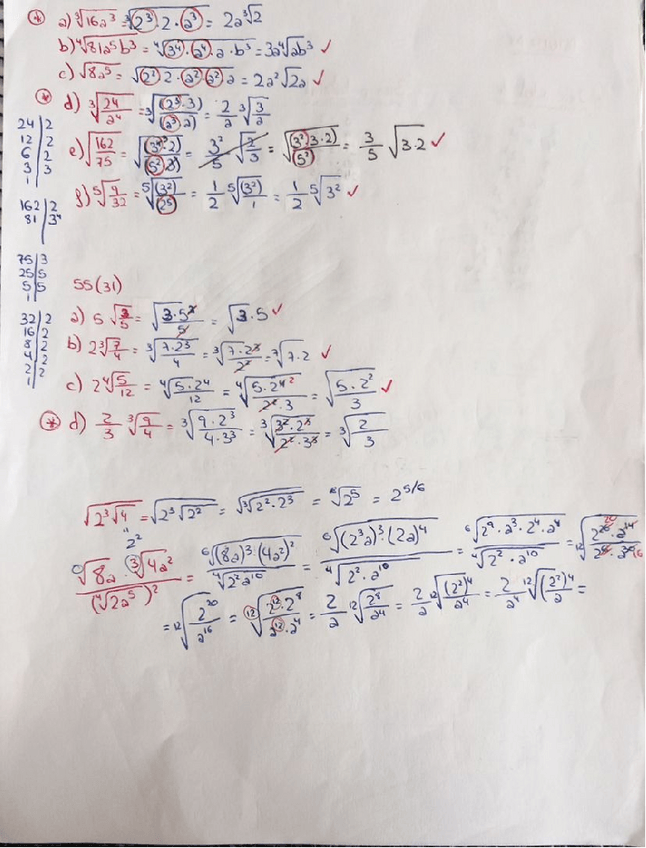 * a) ∛16a³ = ∛2³·2·a³ = 2a∛2
b) ∜81a⁵b³ = ∜3⁴·a⁴·a·b³ = 3a∜ab³ ✓
c) √8a⁵ = √2²·2·a²·a²·a = 2a²√2a ✓
* d) ∛24/a⁴ = ∛(2³·3)/(a³·a) = 2/a ∛3/a
24 | 2
12 | 2
6 | 2
3 | 3
1
e) √162/75 = = √(3²·3·2)/(5²) = 3/5 √3·2 ✓
f) ⁵√9/32 = ⁵√(3²)/2⁵ = 1/2 ⁵√(3²)/1 = 1/2 ⁵√3² ✓
162 | 2
81 | 3⁴
75 | 3
25 | 5
5 | 5
1
55(31)
32 | 2
16 | 2
8 | 2
4 | 2
2 | 2
1
a) 5 √3/5 = √3·5²/5 = √3·5 ✓
b) 2∛7/4 = ∛7·2³/4 = ∛7·2³/2² = ∛7·2 ✓
c) 2∜5/12 = ∜5·2⁴/12 = ∜5·2⁴/2²·3 = √5·2²/3 ✓
* d) 2/3 ∛9/4 = ∛9·2³/4·3³ = ∛3²·2³/2²·3³ = ∛2/3
√2∛4 = √2∛2² = √∛2²·2³ = ⁶√2⁵ = 2^5/6
" 2²
√8a·∛4a²/(∜2a⁵)² = ⁶√(8a)³·(4a²)²/∜2²a¹⁰ = ⁶√(2³a)³·(2a)⁴/∜2²·a¹⁰ = ⁶√2⁹·a³·2⁴·a⁴/∜2²·a¹⁰ =
= ¹²√2²⁰/a¹⁶ = ¹²√2¹²·2⁸/a¹²·a⁴ = 2/a ¹²√2⁸/a⁴ = 2/a ¹²√(2²)⁴/a⁴ = 2/a⁴ ¹²√(2²)⁴/a =